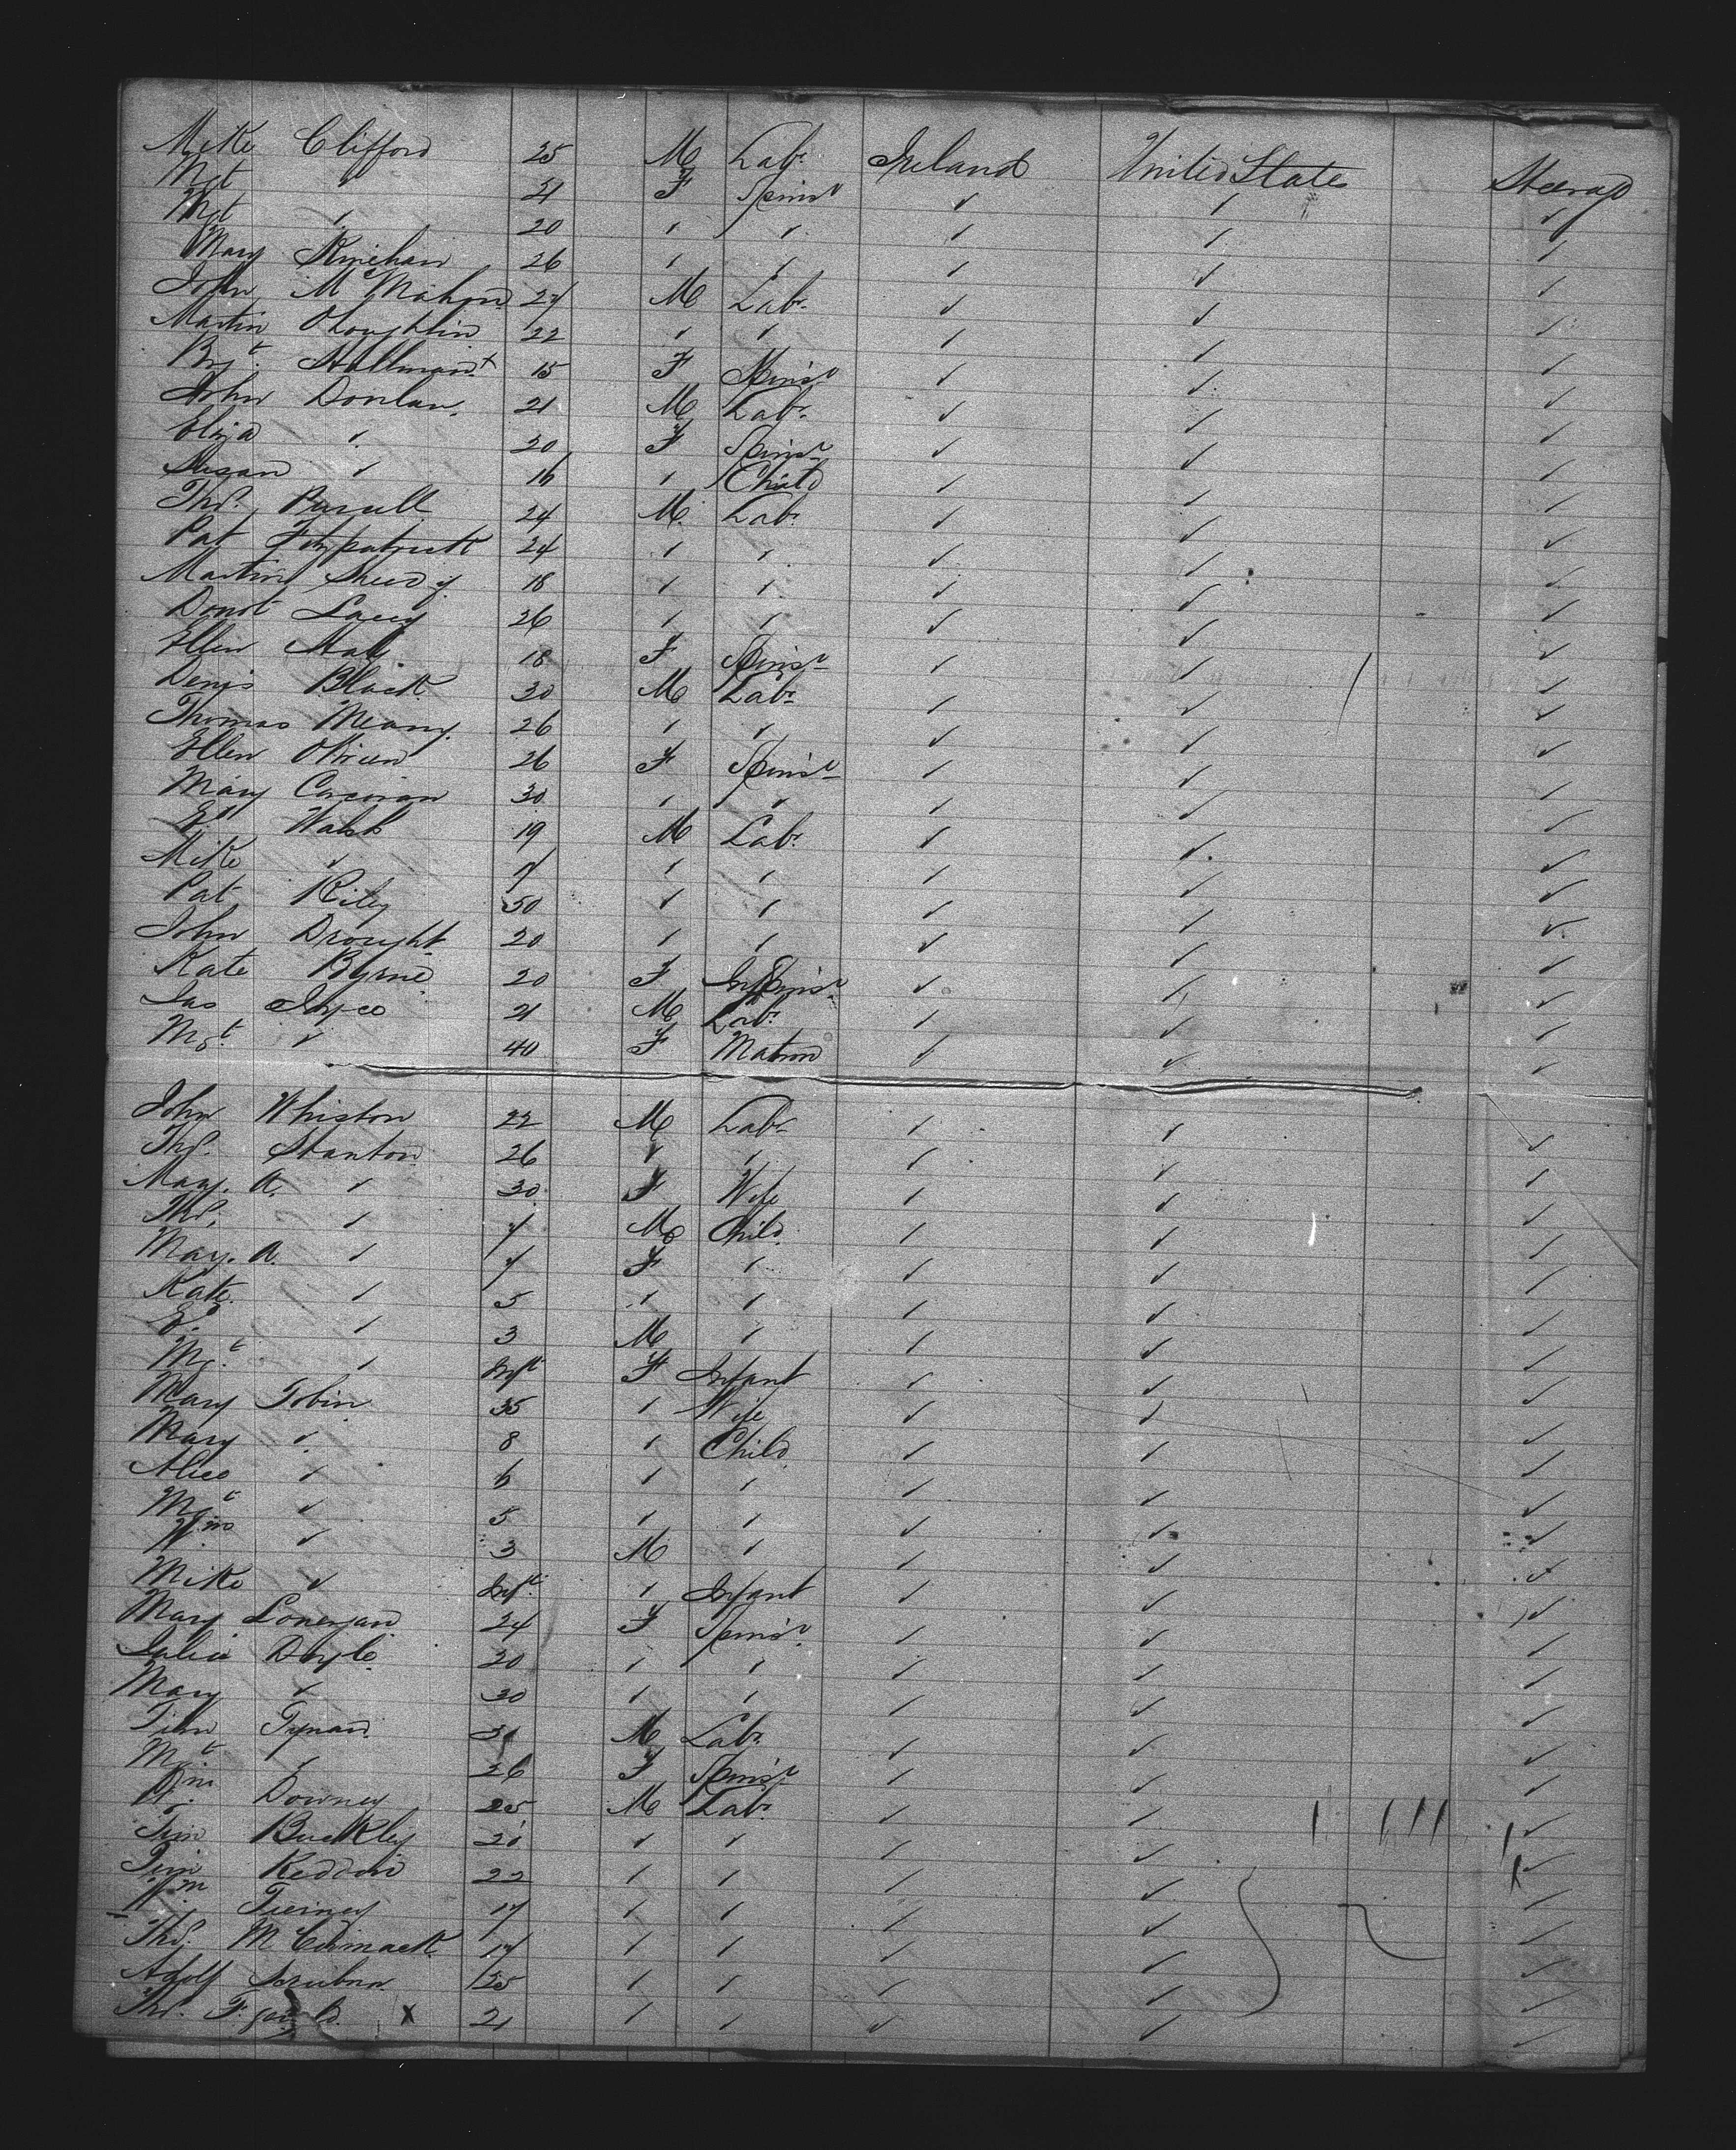 Mike Clifford 25 M Labr. Ireland United States Steerage
Mgt ✓ 21 F Spinsr ✓ ✓ ✓
Mgt ✓ 20 ✓ ✓ ✓ ✓ ✓
Mary Kinehan 26 ✓ ✓ ✓ ✓ ✓
John McMahon 27 M Labr. ✓ ✓ ✓
Martin OLoughlin 22 ✓ ✓ ✓ ✓ ✓
Brgt. 15 F Spinsr ✓ ✓ ✓
John Donlan. 21 M Labr. ✓ ✓ ✓
Eliza ✓ 20 F Spinsr ✓ ✓ ✓
Susan ✓ 16 ✓ Child ✓ ✓ ✓
Thos. Purcell 24 M. Labr. ✓ ✓ ✓
Pat Fitzpatrick 24 ✓ ✓ ✓ ✓ ✓
Martin Sheedy 18 ✓ ✓ ✓ ✓ ✓
Lacey 26 ✓ ✓ ✓ ✓ ✓
Ellen 18 F Spinsr ✓ ✓ ✓
Denis Black 30 M Labr ✓ ✓ ✓
Thomas Meany. 26 ✓ ✓ ✓ ✓ ✓
Ellen OBrien 26 F Spinsr ✓ ✓ ✓
Mary Corcoran 30 ✓ ✓ ✓ ✓ ✓
Ed Walsh 19 M Labr. ✓ ✓ ✓
Mike ✓ 7 ✓ ✓ ✓ ✓ ✓
Pat Riley 50 ✓ ✓ ✓ ✓ ✓
John Drought 20 ✓ ✓ ✓ ✓ ✓
Kate Byrne 20 F Spinsr ✓ ✓ ✓
Jas Joyce 21 M Labr. ✓ ✓ ✓
Mgt. ✓ 40 F Matron ✓ ✓ ✓
John Whiston 22 M Labr ✓ ✓ ✓
Thos. Stanton 26 ✓ ✓ ✓ ✓ ✓
Mary. A. ✓ 30 F Wife ✓ ✓ ✓
Thos. ✓ 7 M Child ✓ ✓ ✓
Mary. A. ✓ 7 F ✓ ✓ ✓ ✓
Kate. ✓ 5 ✓ ✓ ✓ ✓ ✓
Ed. ✓ 3 M ✓ ✓ ✓ ✓
Mgt. ✓ Inft F Infant ✓ ✓ ✓
Mary Tobin 35 ✓ Wife ✓ ✓ ✓
Mary ✓ 8 ✓ Child ✓ ✓ ✓
Alice ✓ 6 ✓ ✓ ✓ ✓ ✓
Mgt ✓ 5 ✓ ✓ ✓ ✓ ✓
Wm. ✓ 3 M ✓ ✓ ✓ ✓
Mike ✓ Inft. ✓ Infant ✓ ✓ ✓
Mary Lonergan 24 F Spinsr. ✓ ✓ ✓
Julia Doyle 20 ✓ ✓ ✓ ✓ ✓
Mary ✓ 30 ✓ ✓ ✓ ✓ ✓
Tim Tynan 30 M Labr ✓ ✓ ✓
Mgt ✓ 26 F Spinsr ✓ ✓ ✓
Wm. Downey 25 M Labr ✓ ✓ ✓
Tim Buckley 21 ✓ ✓ ✓ ✓ ✓
Tim Reddin 22 ✓ ✓ ✓ ✓ ✓
Wm Tierney 17 ✓ ✓ ✓ ✓ ✓
Thos. McCormack 17 ✓ ✓ ✓ ✓ ✓
Adolf 25 ✓ ✓ ✓ ✓ ✓
Thos. x 21 ✓ ✓ ✓ ✓ ✓